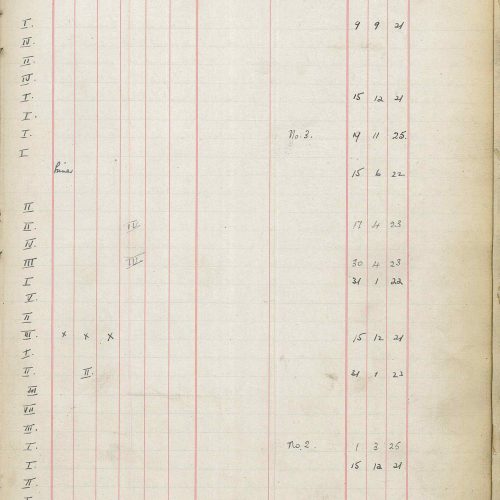 I. 9 9 21
IV.
II.
IV.
I. 15 12 21
I.
I. No. 3. 19 11 25.
I
15 6 22
II
II. IV 17 4 23
IV.
III III 30 4 23
I 31 1 22
V.
II
III. x x x 15 12 21
I.
II. II. 31 1 23
III
VII
III.
I. No. 2. 1 3 26
I. 15 12 21
II
I